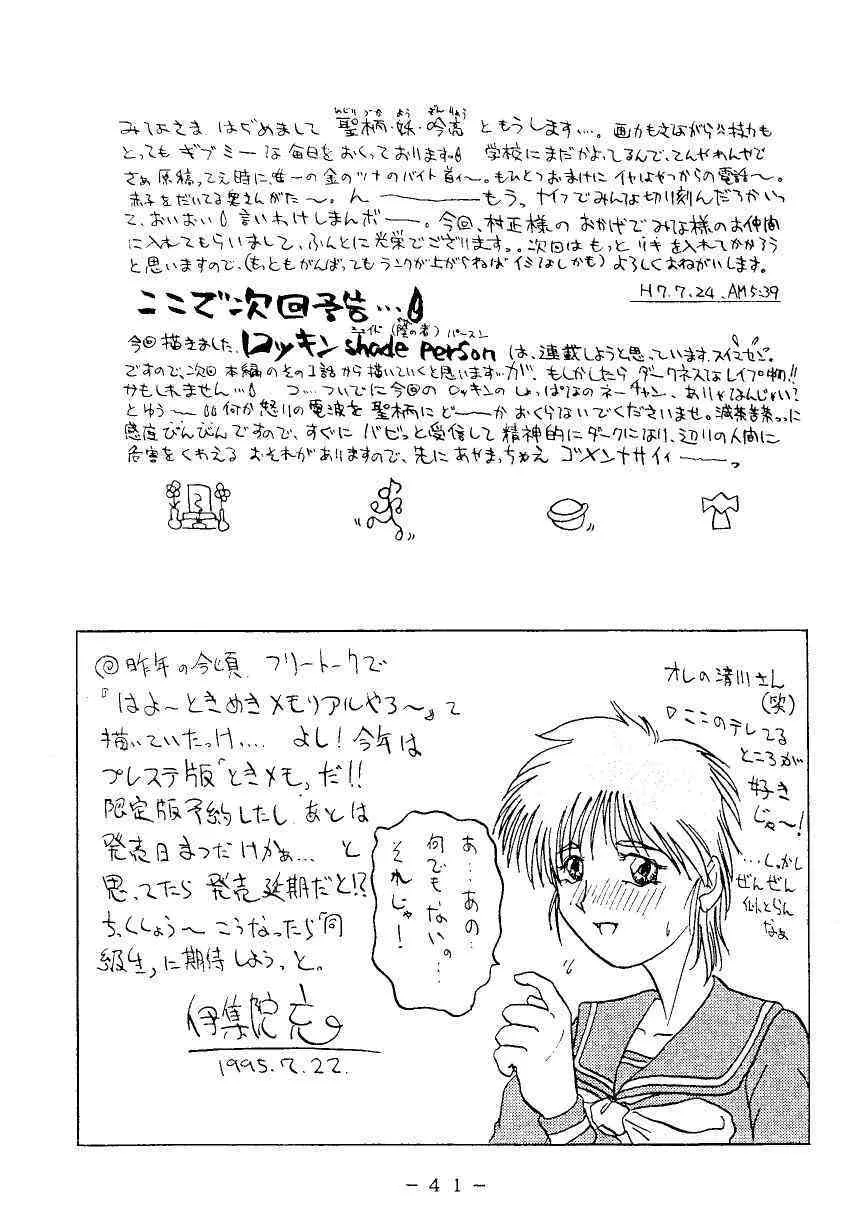 みなさま はぢめまして 聖柄・妖・吟高 ともうします…。画力もさながら〃技力も
とっても ギブミーな毎日をおくっております。 学校にまだかよってるんで、てんやわんやで
さぁ原稿ってえ時に、唯一の金のツナのバイト首ィ〜。もひとつおまけに イヤなやつからの電話〜。
赤子をだいてる奥さんがた〜。ん────もう、ナイフでみんな切り刻んだろかいっ
て、おいおい 言いわけしまんボ──。今回、村正様の おかげでみな様のお仲間
に入れてもらいまして、ふんとに光栄でございます。。次回は もっと リキ を入れてかかろう
と思いますので、(もっともがんばっても ランクが上がらねば イミなしかも) よろしくおねがいします。
H7.7.24.AM5:39
ここで次回予告…
今回描きました、ロッキン shade person は、連載しようと思っています。スイマセン
シェイド(陰の者) パースン
ですので、次回 本編のその1話から描いていくと思います…が、もしかしたら ダークネスなレイプ物!!
かもしれません… つ…ついでに今回の ロッキンの しょっぱなのネーチャン、ありゃなんじゃい?
とゆう〜 何か怒りの電波を聖柄にど──かおくらないでくださいませ。滅茶苦茶っに
感度びんびんですので、すぐに バビッと受信して 精神的にダークになり、辺りの人間に
危害をくわえる おそれがありますので、先にあやまっちゃえ ゴメンナサイィ───っ
◎昨年の今頃 フリートークで
『はよ〜ときめきメモリアルやろ〜』て
描いていたっけ…. よし!今年は
プレステ版「ときメモ」だ!!
限定版予約したし あとは
発売日まつだけかぁ… と
思ってたら 発売延期だと!?
ちっくしょう〜 こうなったら「同
級生」に期待しようっと。
伊集院 充
1995.7.22.
あ…あの…
何でもないの…
それじゃ!
オレの清川さん
(笑)
ここのテレてる
ところが
好き
じゃ〜!
…しっかし
ぜんぜん
似とらん
なぁ
- 41 -